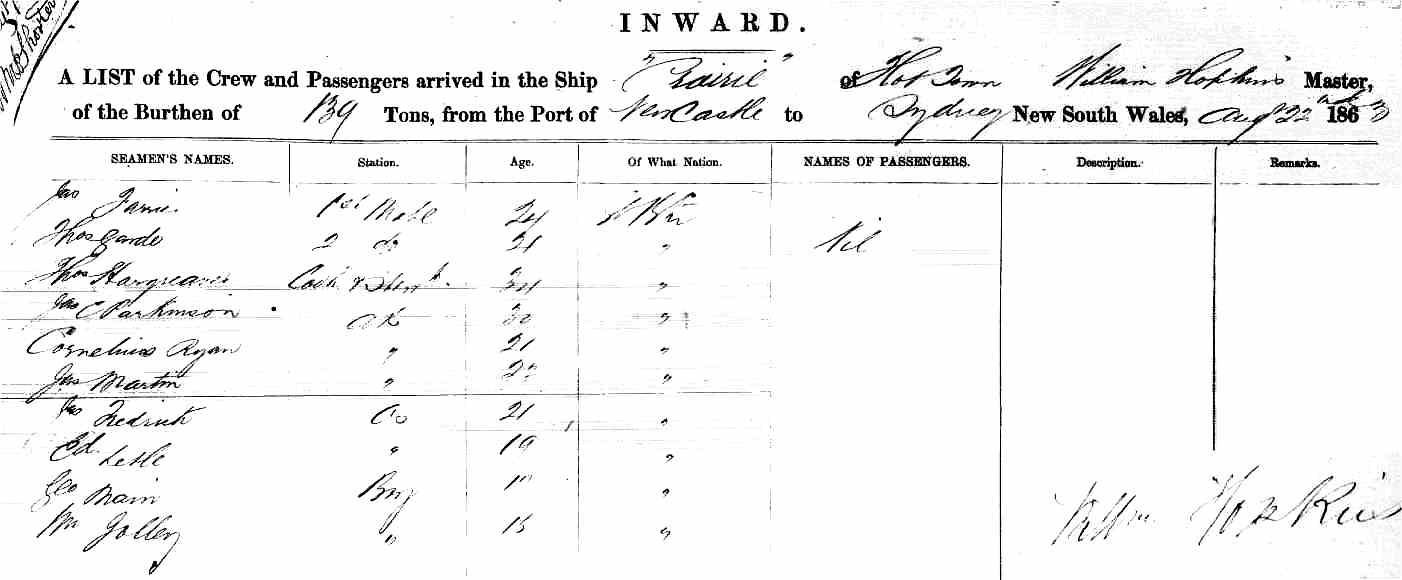 INWARD.
A LIST of the Crew and Passengers arrived in the Ship "Prairie" of Hob Town William Hopkins Master,
of the Burthen of 139 Tons, from the Port of NewCastle to Sydney New South Wales, Aug 22nd 186
SEAMEN'S NAMES. Station. Age. Of What Nation. NAMES OF PASSENGERS. Description. Remarks.
Jas 1st Mate 24
Thos Garde 2 do 21 " Nil
Thos Hargreaves Cook & 24 "
Jas Parkinson "
Cornelius Ryan " 21 "
Jas Martin " "
Jas Fredrick 21 "
Ed. Lesle " 19 "
Geo Main Boy "
Wm Jolley " 15 "
Willm Hopkins